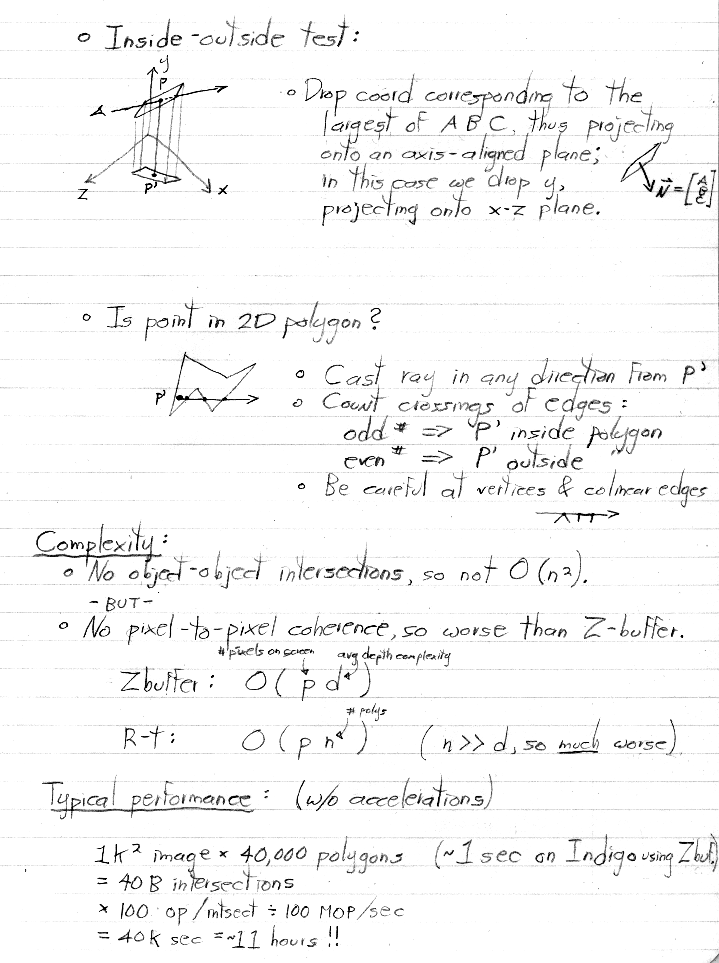 o Inside-outside test:
y
P
z
P'
x
o Drop coord corresponding to the
largest of A B C, thus projecting
onto an axis-aligned plane;
in this case we drop y,
projecting onto x-z plane.
N = [A B C]
o Is point in 2D polygon?
P'
o Cast ray in any direction from P'
o Count crossings of edges:
odd # => P' inside polygon
even # => P' outside "
o Be careful at vertices & colinear edges
Complexity:
o No object-object intersections, so not O(n²).
- BUT -
o No pixel-to-pixel coherence, so worse than Z-buffer.
# pixels on screen avg depth complexity
Zbuffer: O( p d )
# polys
R-t: O( p n ) (n >> d, so much worse)
Typical performance: (w/o accelerations)
1k² image × 40,000 polygons (~1 sec on Indigo using Zbuf.)
= 40 B intersections
× 100 op/intsect ÷ 100 MOP/sec
= 40k sec = ~11 hours !!